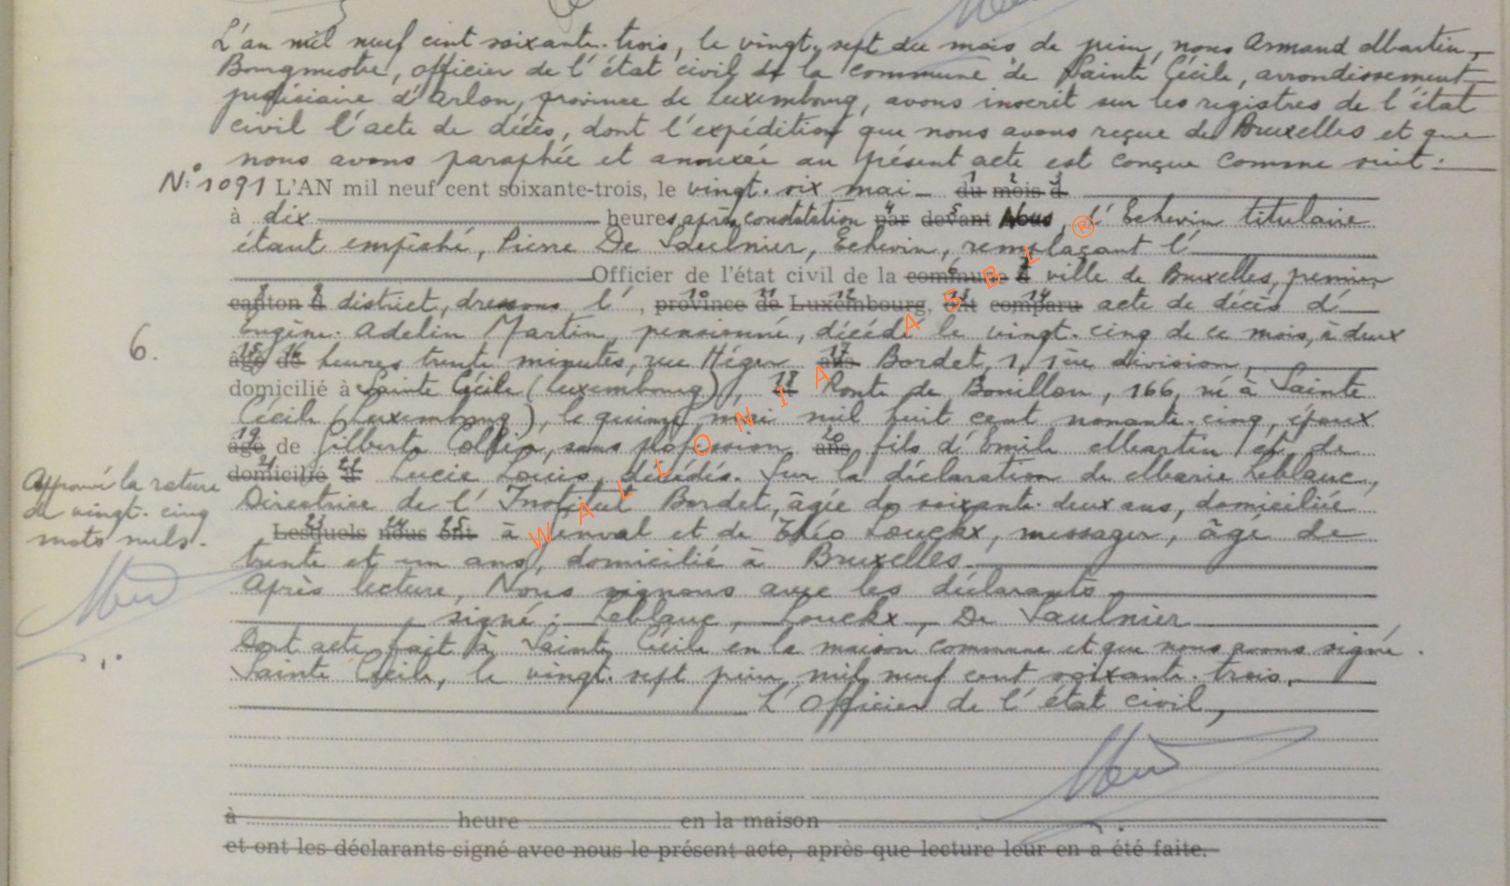 L'an mil neuf cent soixante-trois, le vingt-sept du mois de juin, nous Armand Martin,
Bourgmestre, officier de l'état civil de la commune de Sainte Cécile, arrondissement
judiciaire d'Arlon, province de Luxembourg, avons inscrit sur les registres de l'état
civil l'acte de décès, dont l'expédition que nous avons reçue de Bruxelles et que
nous avons paraphée et annexée au présent acte est conçue comme suit :
N° 1091 L'AN mil neuf cent soixante-trois, le vingt-six mai du mois d
à dix heures après constatation par devant Nous, l'Echevin titulaire
étant empêché, Pierre De Saulnier, Echevin, remplaçant l'
Officier de l'état civil de la commune d ville de Bruxelles, premier
canton d district, dressons l', province de Luxembourg, ont comparu acte de décès d'
Eugène Adelin Martin, pensionné, décédé le vingt-cinq de ce mois, à deux
6.
âgé de heures trente minutes, rue Héger ans Bordet, 1, 1ère division,
domicilié à Sainte Cécile (Luxembourg), Route de Bouillon, 166, né à Sainte
Cécile (Luxembourg), le quinze mai mil huit cent nonante-cinq, époux
âgé de Gilberte, sans profession ans fils d'Emile Martin et de
domicilié à Lucie, décédés. Sur la déclaration de Marie Leblanc,
Approuvé la rature
de vingt-cinq
mots nuls.
Directrice de l'Institut Bordet, âgée de soixante-deux ans, domiciliée
Lesquels nous ont à Genval et de Théo Louckx, messager, âgé de
trente et un ans, domicilié à Bruxelles.
Après lecture, Nous signons avec les déclarants
signé : Leblanc, Louckx, De Saulnier
Dont acte, fait à Sainte Cécile en la maison commune et que nous avons signé.
Sainte Cécile, le vingt-sept juin mil neuf cent soixante-trois.
L'Officier de l'état civil,
à heure en la maison
et ont les déclarants signé avec nous le présent acte, après que lecture leur en a été faite.
WALLONIA ASBL ®